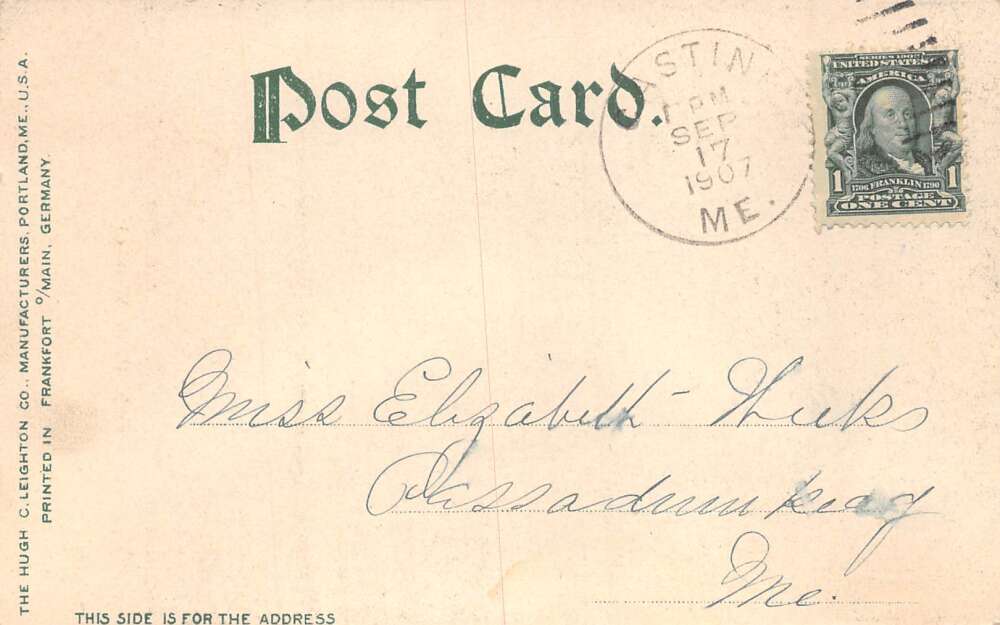 Post Card.
CASTINE
1 PM
SEP
17
1907
ME.
SERIES 1902
UNITED STATES
AMERICA
1 1
1706 FRANKLIN 1790
POSTAGE
ONE CENT
THE HUGH C. LEIGHTON CO., MANUFACTURERS, PORTLAND, ME., U.S.A.
PRINTED IN FRANKFORT o/MAIN, GERMANY.
Miss Elizabeth Weeks
Passadumkeag
Me.
THIS SIDE IS FOR THE ADDRESS